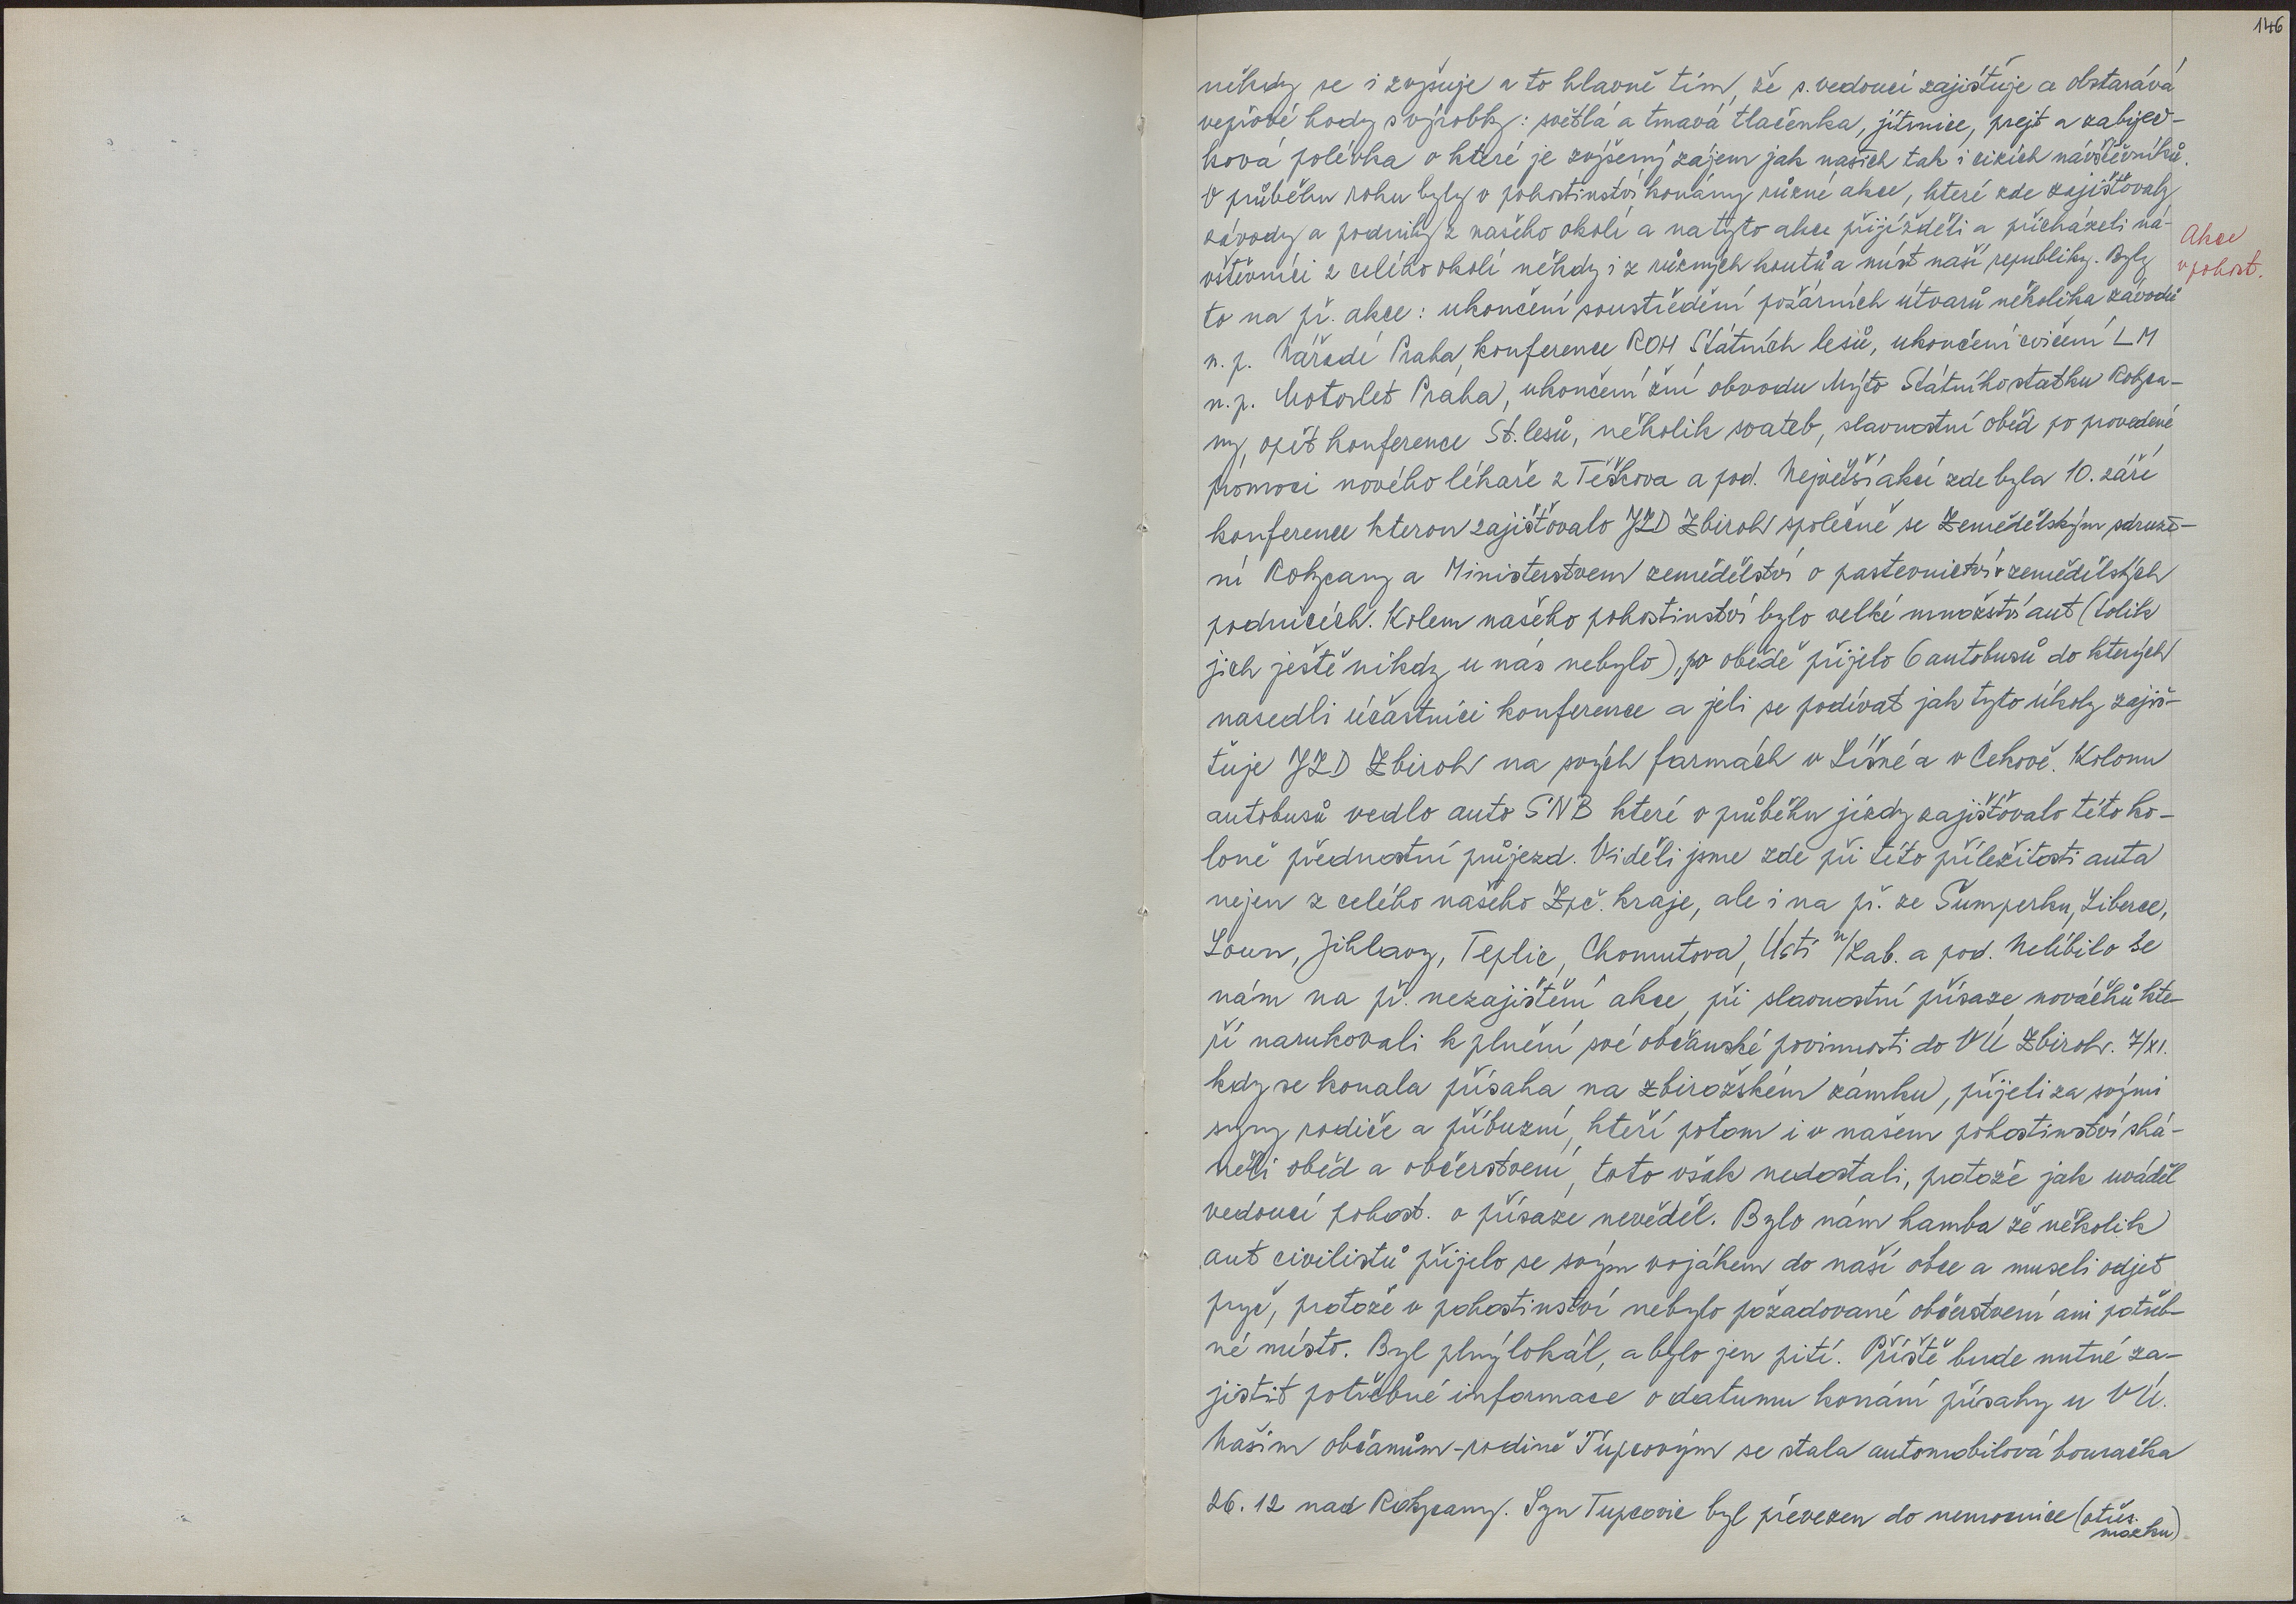 146
někdy se i zvyšuje a to hlavně tím, že s. vedoucí zajišťuje a obstarává
vepřové hody s výrobky: světlá a tmavá tlačenka, jitrnice, prejt a zabijač-
ková polévka o které je zvýšený zájem jak našich tak i cizích návštěvníků.
V průběhu roku byly v pohostinství konány různé akce, které zde zajišťovaly
závody a podniky z našeho okolí a na tyto akce přijížděli a přicházeli ná-
vštěvníci z celého okolí někdy i z různých koutů a míst naší republiky. Byly
Akce
v pohost.
to na př. akce: ukončení soustředění požárních útvarů několika závodů
n. p. Nářadí Praha, konference ROH Státních lesů, ukončení cvičení LM
n. p. Motorlet Praha, ukončení žní obvodu Mýto Státního statku Rokyca-
ny, opět konference St. lesů, několik svateb, slavnostní oběd po provedené
promoci nového lékaře z Těškova a pod. Největší akcí zde byla 10. září
konference kterou zajišťovalo JZD Zbiroh společně se Zemědělským sdruže-
ní Rokycany a Ministerstvem zemědělství o pastevnictví v zemědělských
podnicích. Kolem našeho pohostinství bylo velké množství aut (tolik
jich ještě nikdy u nás nebylo), po obědě přijelo 6 autobusů do kterých
nasedli účastníci konference a jeli se podívat jak tyto úkoly zajiš-
ťuje JZD Zbiroh na svých farmách v Líšné a v Čekově. Kolonu
autobusů vedlo auto SNB které v průběhu jízdy zajišťovalo této ko-
loně přednostní průjezd. Viděli jsme zde při této příležitosti auta
nejen z celého našeho Zpč. kraje, ale i na př. ze Šumperku, Liberce,
Loun, Jihlavy, Teplic, Chomutova, Ústí n/Lab. a pod. Nelíbilo se
nám na př. nezajištění akce, při slavnostní přísaze nováčků kte-
ří narukovali k plnění své občanské povinnosti do VÚ Zbiroh. 7/XI.
kdy se konala přísaha na zbirožském zámku, přijeli za svými
syny rodiče a příbuzní, kteří potom i v našem pohostinství shá-
něli oběd a občerstvení, toto však nedostali, protože jak uváděl
vedoucí pohost. o přísaze nevěděl. Bylo nám hamba že několik
aut civilistů přijelo se svým vojákem do naší obce a museli odjet
pryč, protože v pohostinství nebylo požadované občerstvení ani potřeb-
né místo. Byl plný lokál, a bylo jen pití. Příště bude nutné za-
jistit potřebné informace o datumu konání přísahy u VÚ.
Našim občanům-rodině Tupcovým se stala automobilová bouračka
26. 12 nad Rokycany. Syn Tupcovic byl převezen do nemocnice (otřes.
mozku)